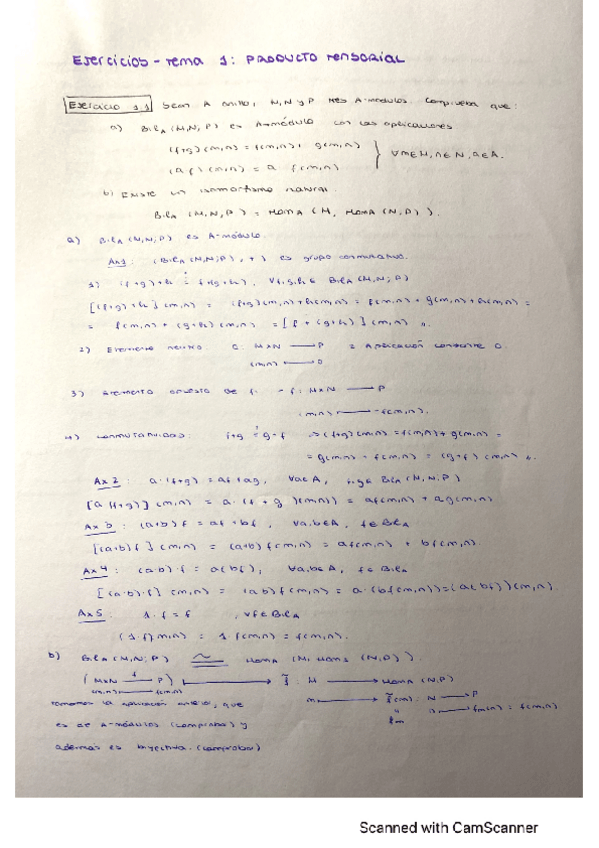 Ejercicios - Tema 1: PRODUCTO TENSORIAL
Ejercicio 1.1 Sean A anillo, M, N y P tres A-módulos. Comprueba que:
a) BilA (M,N; P) es A-módulo con las aplicaciones
(f+g)(m,n) = f(m,n) + g(m,n)
(a f)(m,n) = a f(m,n) } ∀m∈M, n∈N, a∈A.
b) Existe un isomorfismo natural
BilA (M,N; P) ≅ HomA (M, HomA (N,P)).
a) BilA (M,N; P) es A-módulo.
Ax1: (BilA (M,N; P), +) es grupo conmutativo.
1) (f+g)+h = f+(g+h), ∀f,g,h ∈ BilA (M,N; P)
[(f+g)+h](m,n) = (f+g)(m,n)+h(m,n) = f(m,n) + g(m,n)+h(m,n) =
= f(m,n) + (g+h)(m,n) = [f + (g+h)](m,n)
2) Elemento neutro 0: M×N → P ≡ Aplicación constante 0.
(m,n) ↦ 0
3) Elemento opuesto de f: -f: M×N → P
(m,n) ↦ -f(m,n).
4) Conmutatividad: f+g = g+f (f+g)(m,n) = f(m,n) + g(m,n) =
= g(m,n) + f(m,n) = (g+f)(m,n)
Ax 2: a·(f+g) = af+ag, ∀a∈A, f,g∈ BilA (M,N; P)
[a(f+g)](m,n) = a·(f+g)(m,n) = af(m,n) + ag(m,n)
Ax 3: (a+b)f = af+bf, ∀a,b∈A, f∈BilA
[(a+b)f](m,n) = (a+b)f(m,n) = af(m,n) + bf(m,n).
Ax 4: (a·b)·f = a(bf), ∀a,b∈A, f∈BilA
[(a·b)·f](m,n) = (ab)f(m,n) = a·(bf(m,n)) = (a(bf))(m,n)
Ax 5: 1·f = f, ∀f∈BilA
(1·f)(m,n) = 1·f(m,n) = f(m,n).
b) BilA (M,N; P) ≅ HomA (M, HomA (N,P)).
(M×N f→ P) ↦ f̃: M → HomA (N,P)
(m,n) ↦ f(m,n) m ↦ f̃(m): N → P
tomamos la aplicación anterior, que n ↦ fm(n) = f(m,n)
es de A-módulos (comprobar) y fm
además es biyectiva. (comprobar)
Scanned with CamScanner